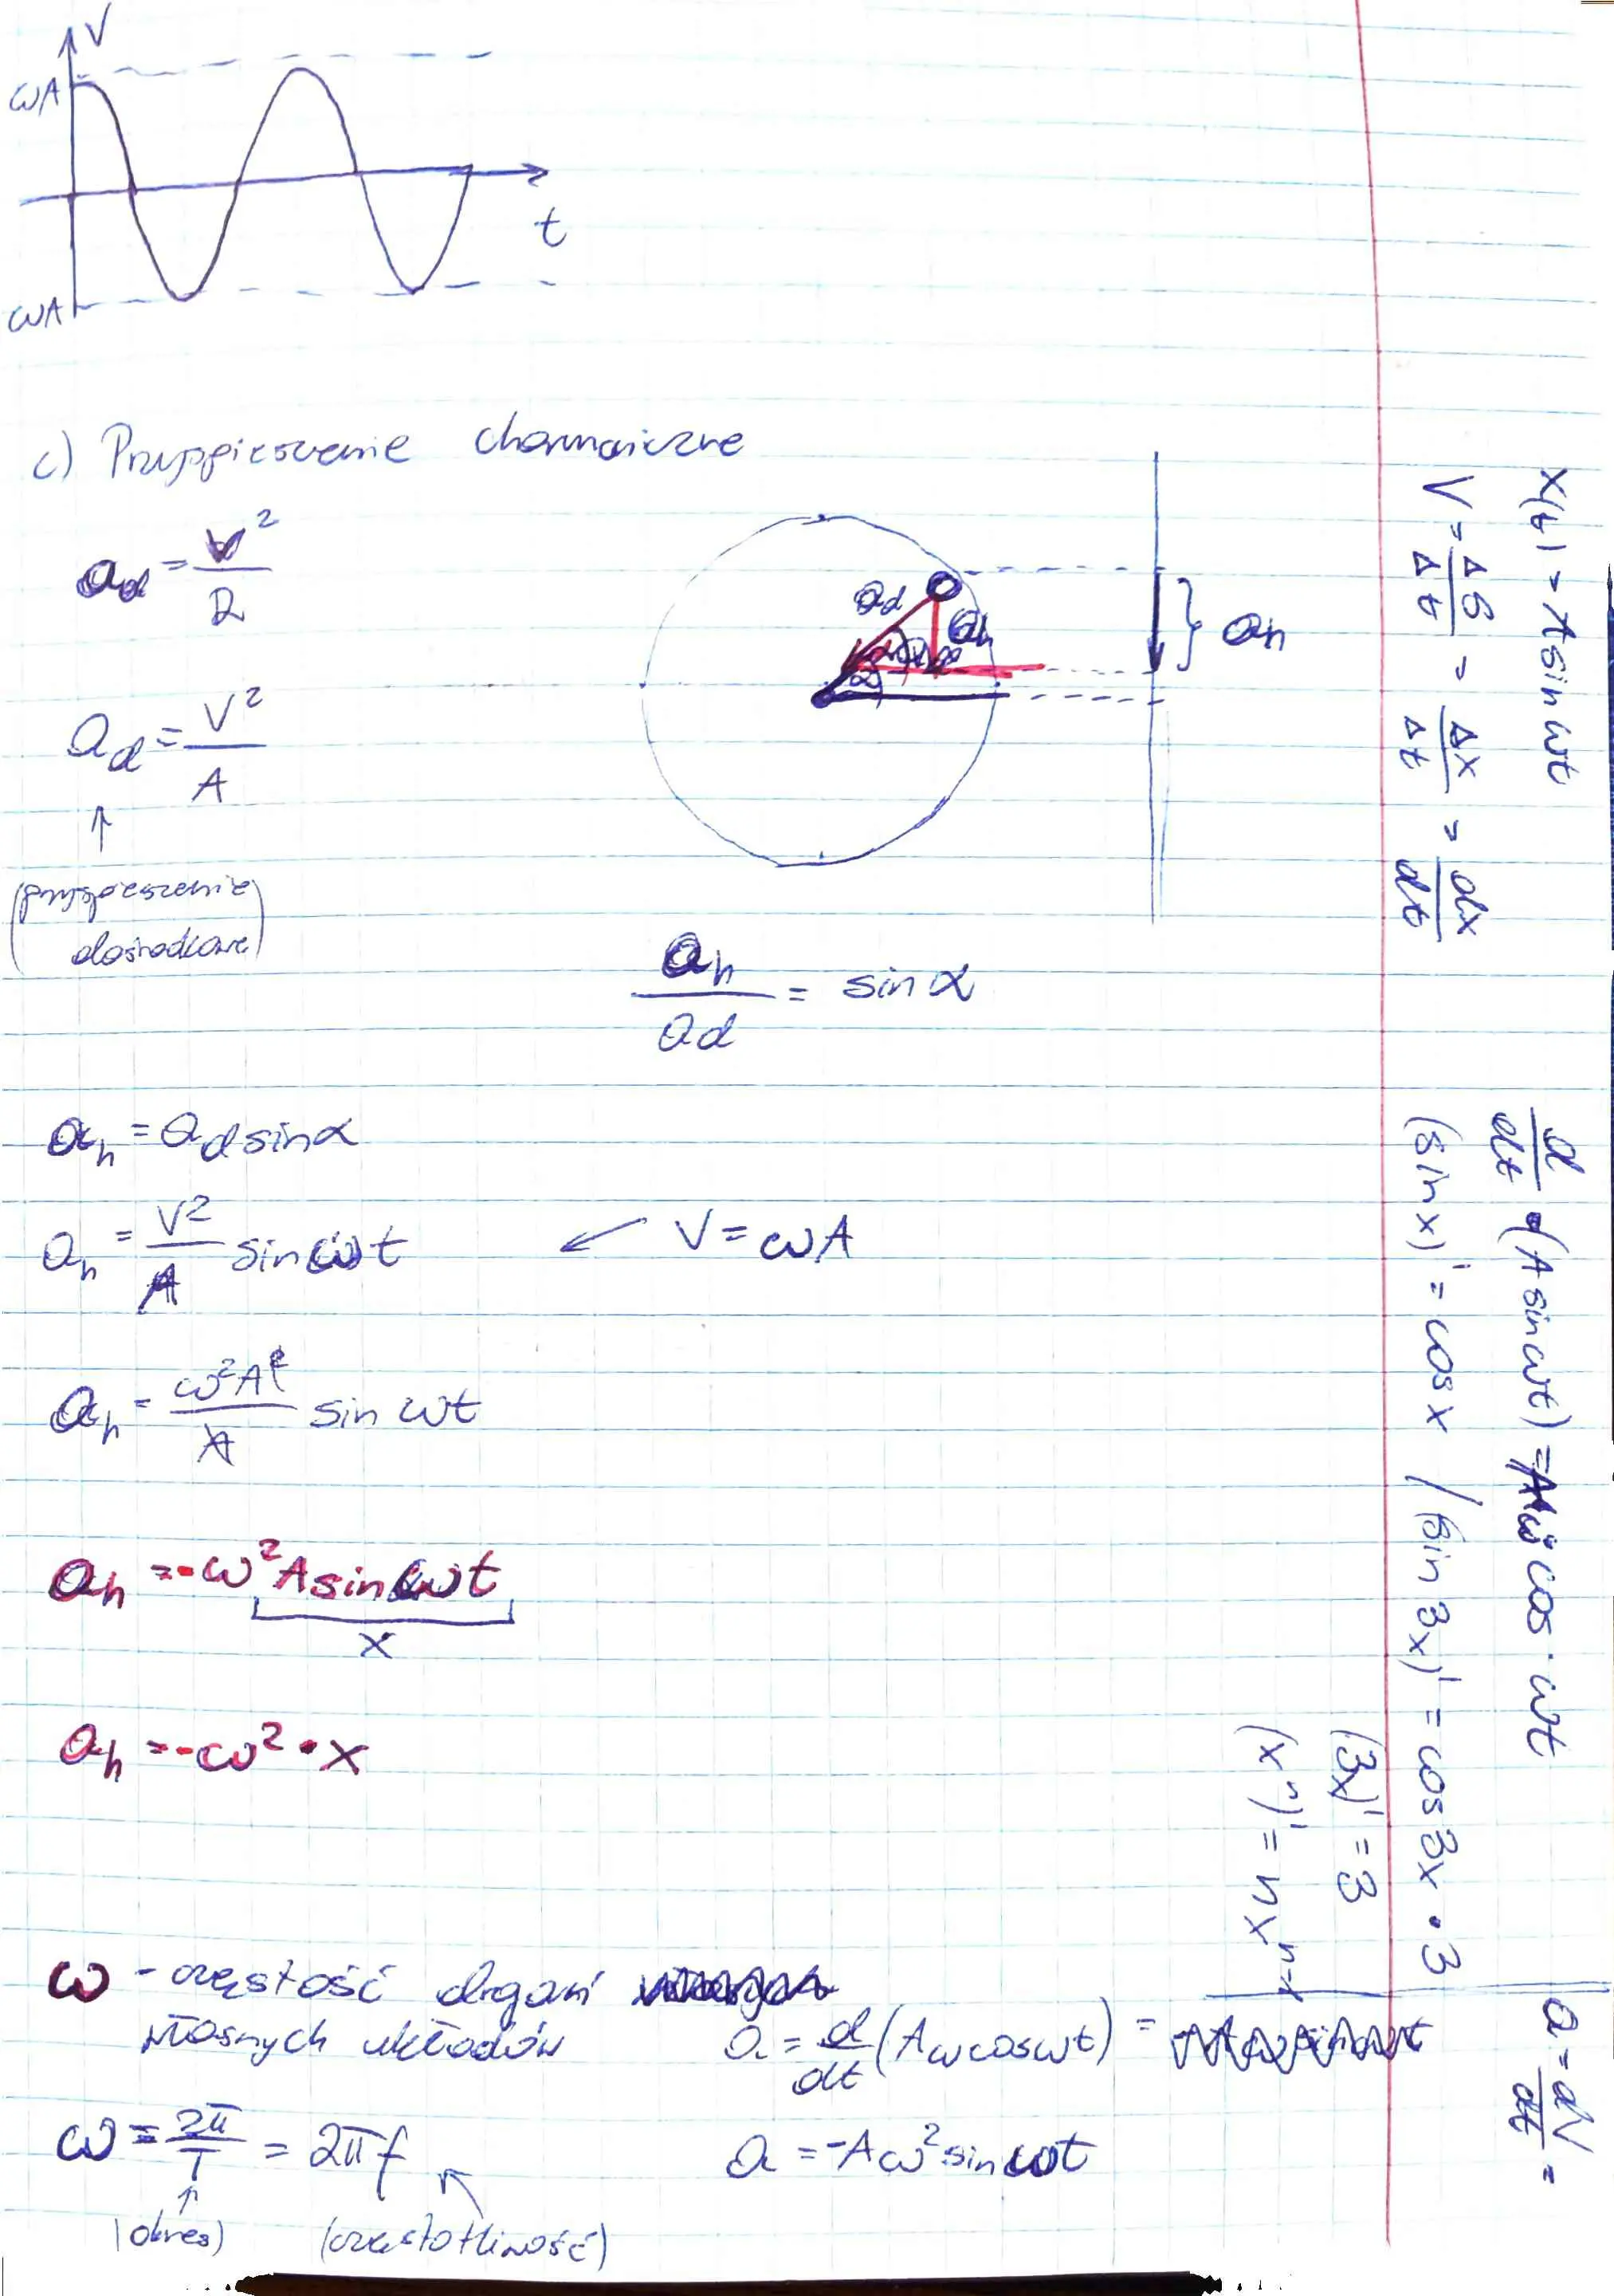 V
ωA
t
ωA
c) Przyspieszenie charmoniczne
a_d = V²/R
a_d = V²/A
↑
(przyspieszenie
dośrodkowe)
a_d
a_h
α
α
} a_h
a_h/a_d = sin α
a_h = a_d sin α
a_h = V²/A sin ωt ↙ V = ωA
a_h = ω²A²/A sin ωt
a_h = -ω² A sin ωt
x
a_h = -ω² · x
ω - częstość drgań
własnych układów
ω = 2π/T = 2πf
↑
(okres) (częstotliwość)
a = d/dt (Aω cos ωt) =
a = -Aω² sin ωt
x(t) = A sin ωt
V = ΔS/Δt = Δx/Δt = dx/dt
d/dt (A sin ωt) = Aω cos · ωt
(sin x)' = cos x / (sin 3x)' = cos 3x · 3
(3x)' = 3
(xⁿ)' = n xⁿ⁻¹
a = dV/dt =